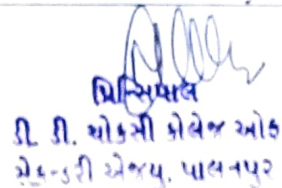 પ્રિન્સિપાલ
ડી. ડી. ચોકસી કોલેજ ઓફ
સેકન્ડરી એજયુ. પાલનપુર